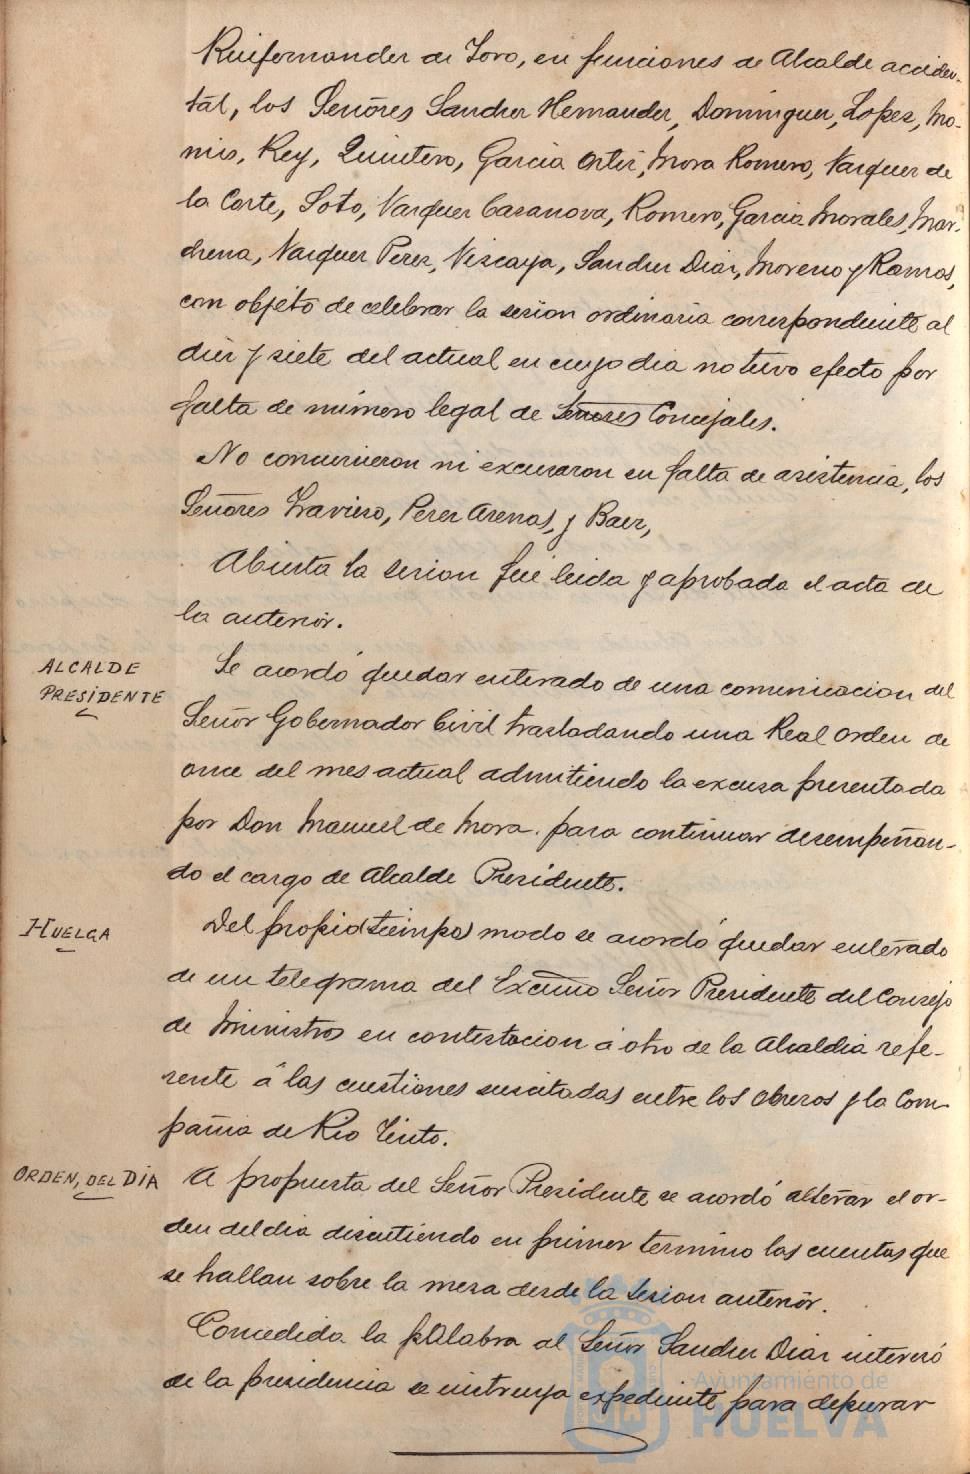 Ruifernandez de Toro, en funciones de Alcalde acciden-
tal, los Señores Sanchez Hernandez, Dominguez, Lopez, Mo-
nis, Rey, Quintero, Garcia Ortiz, Mora Romero, Vazquez de
la Corte, Soto, Vazquez Casanova, Romero, Garcia Morales, Mar-
chena, Vazquez Perez, Vizcaya, Sanchez Diaz, Moreno y Ramos,
con objeto de celebrar la sesion ordinaria correspondiente al
diez y siete del actual en cuyo dia no tuvo efecto por
falta de número legal de Señores Concejales.
No concurrieron ni excusaron su falta de asistencia, los
Señores Travieso, Perez Arenas, y Baez,
Abierta la sesion fué leida y aprobada el acta de
la anterior.
ALCALDE
PRESIDENTE
Se acordó quedar enterado de una comunicacion del
Señor Gobernador Civil trasladando una Real Orden de
once del mes actual admitiendo la excusa presentada
por Don Manuel de Mora. para continuar desempeñan-
do el cargo de Alcalde Presidente.
HUELGA
Del propio (tiempo) modo se acordó quedar enterado
de un telegrama del Excmo Señor Presidente del Consejo
de Ministros en contestacion á otro de la Alcaldia refe-
rente á las cuestiones suscitadas entre los obreros y la Com-
pañia de Rio Tinto.
ORDEN, DEL DIA
A propuesta del Señor Presidente se acordó alterar el or-
den del dia discutiendo en primer termino las cuentas que
se hallan sobre la mesa desde la sesion anterior.
Concedida la palabra al Señor Sanchez Diaz interesó
de la presidencia se instruya expediente para depurar
Ayuntamiento de
HUELVA